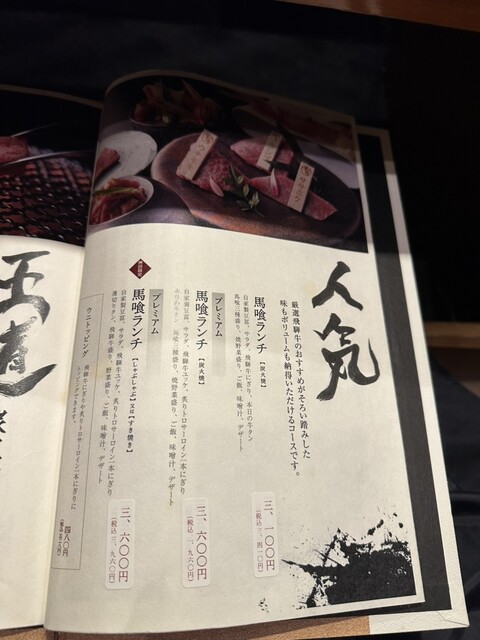 人気
厳選飛騨牛のおすすめがそろい踏みした
味もボリュームも納得いただけるコースです。
馬喰ランチ【炭火焼】
自家製豆富、サラダ、飛騨牛にぎり、本日の牛タン
馬喰三種盛り、焼野菜盛り、ご飯、味噌汁、デザート
三、一〇〇円
(税込 三、四一〇円)
プレミアム
馬喰ランチ【炭火焼】
自家製豆富、サラダ、飛騨牛ユッケ、炙りトロサーロイン一本にぎり
馬喰三種盛り、焼野菜盛り、ご飯、味噌汁、デザート
三、六〇〇円
プレミアム
馬喰ランチ【しゃぶしゃぶ】又は【すき焼き】
自家製豆富、サラダ、飛騨牛ユッケ、炙りトロサーロイン一本にぎり
薄切り牛タン、飛騨牛盛り、野菜盛り、ご飯、味噌汁、デザート
三、六〇〇円
(税込 三、九六〇円)
ウニトッピング
飛騨牛にぎりや炙りトロサーロイン一本にぎりに
トッピングできます。
四八〇円
王道